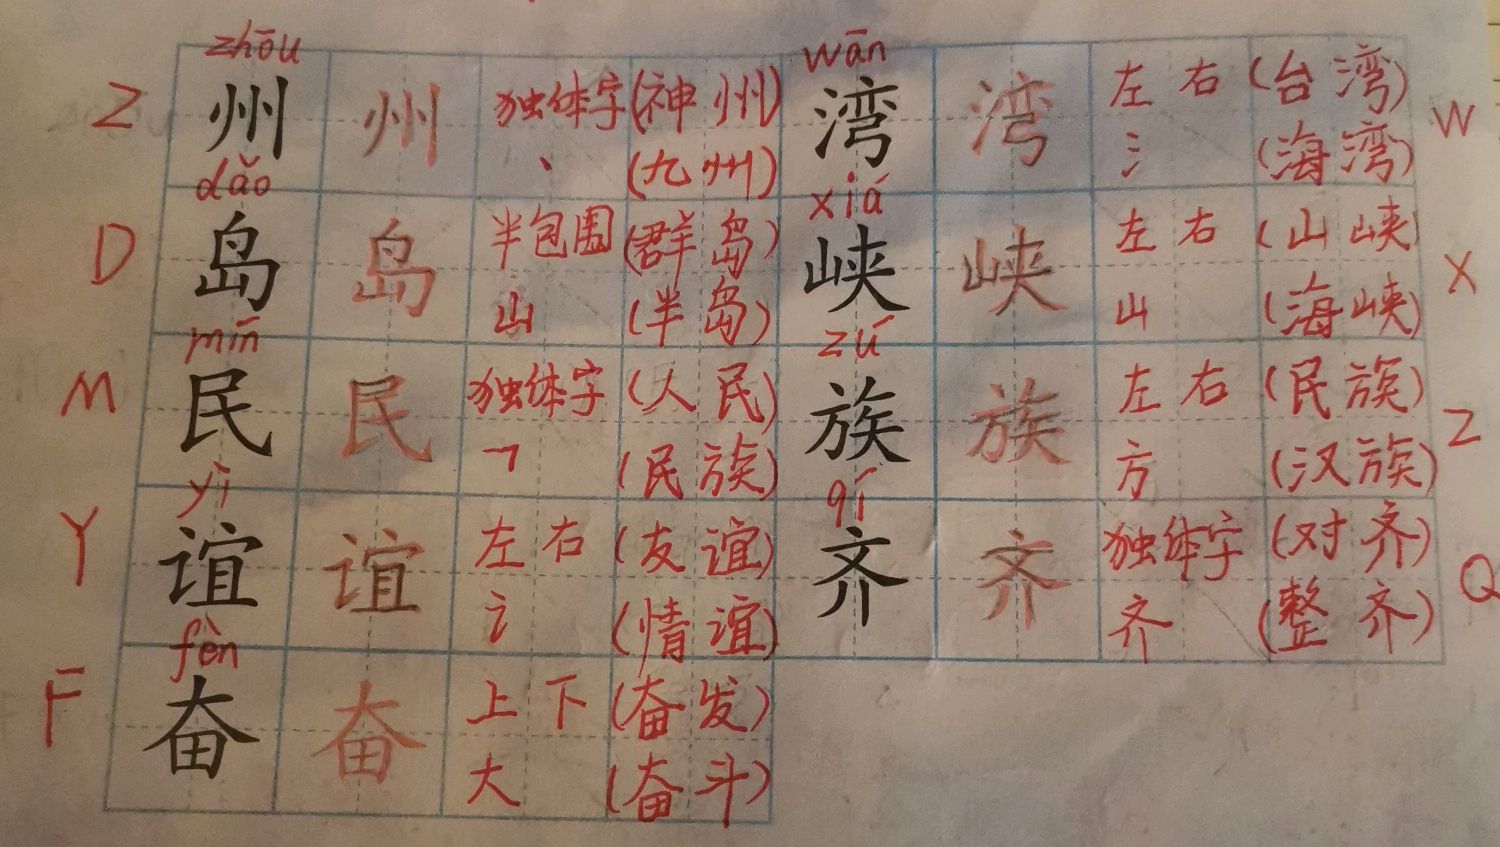 zhōu wān
Z 州 州 独体字 (神州) 湾 湾 左右 (台湾) W
丶 (九州) 氵 (海湾)
dǎo xiá
D 岛 岛 半包围 (群岛) 峡 峡 左右 (山峡) X
山 (半岛) 山 (海峡)
mín zú
M 民 民 独体字 (人民) 族 族 左右 (民族) Z
乛 (民族) 方 (汉族)
yì qí
Y 谊 谊 左右 (友谊) 齐 齐 独体字 (对齐) Q
讠 (情谊) 齐 (整齐)
fèn
F 奋 奋 上下 (奋发)
大 (奋斗)